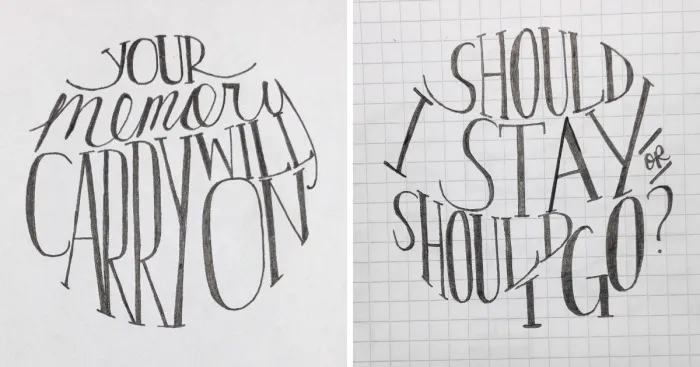 YOUR
memory
WILL
CARRY ON
SHOULD
I STAY
OR
SHOULD
I GO?